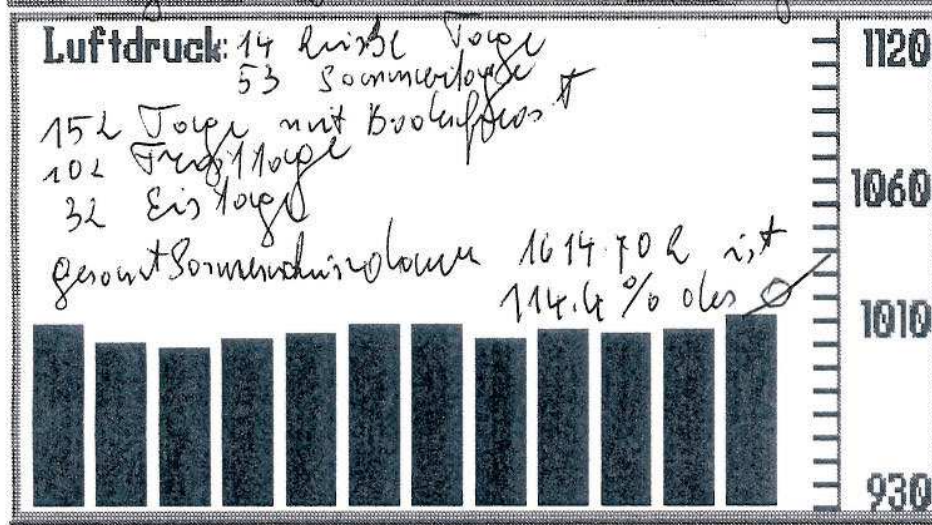 Luftdruck: 14 heiße Tage
53 Sommertage
152 Tage mit Bodenfrost
102 Frosttage
32 Eistage
gesamt Sonnenscheindauer 1614.70 h ist
114.4 % des Ø
1120
1060
1010
930